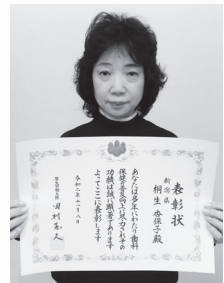 表彰状
新潟県
桐生 香保子殿
あなたは多年にわたり歯科
保健の普及向上に尽力されその
功績は誠に顕著であります
よってここに表彰します
令和二年十一月八日
厚生労働大臣 田村憲久